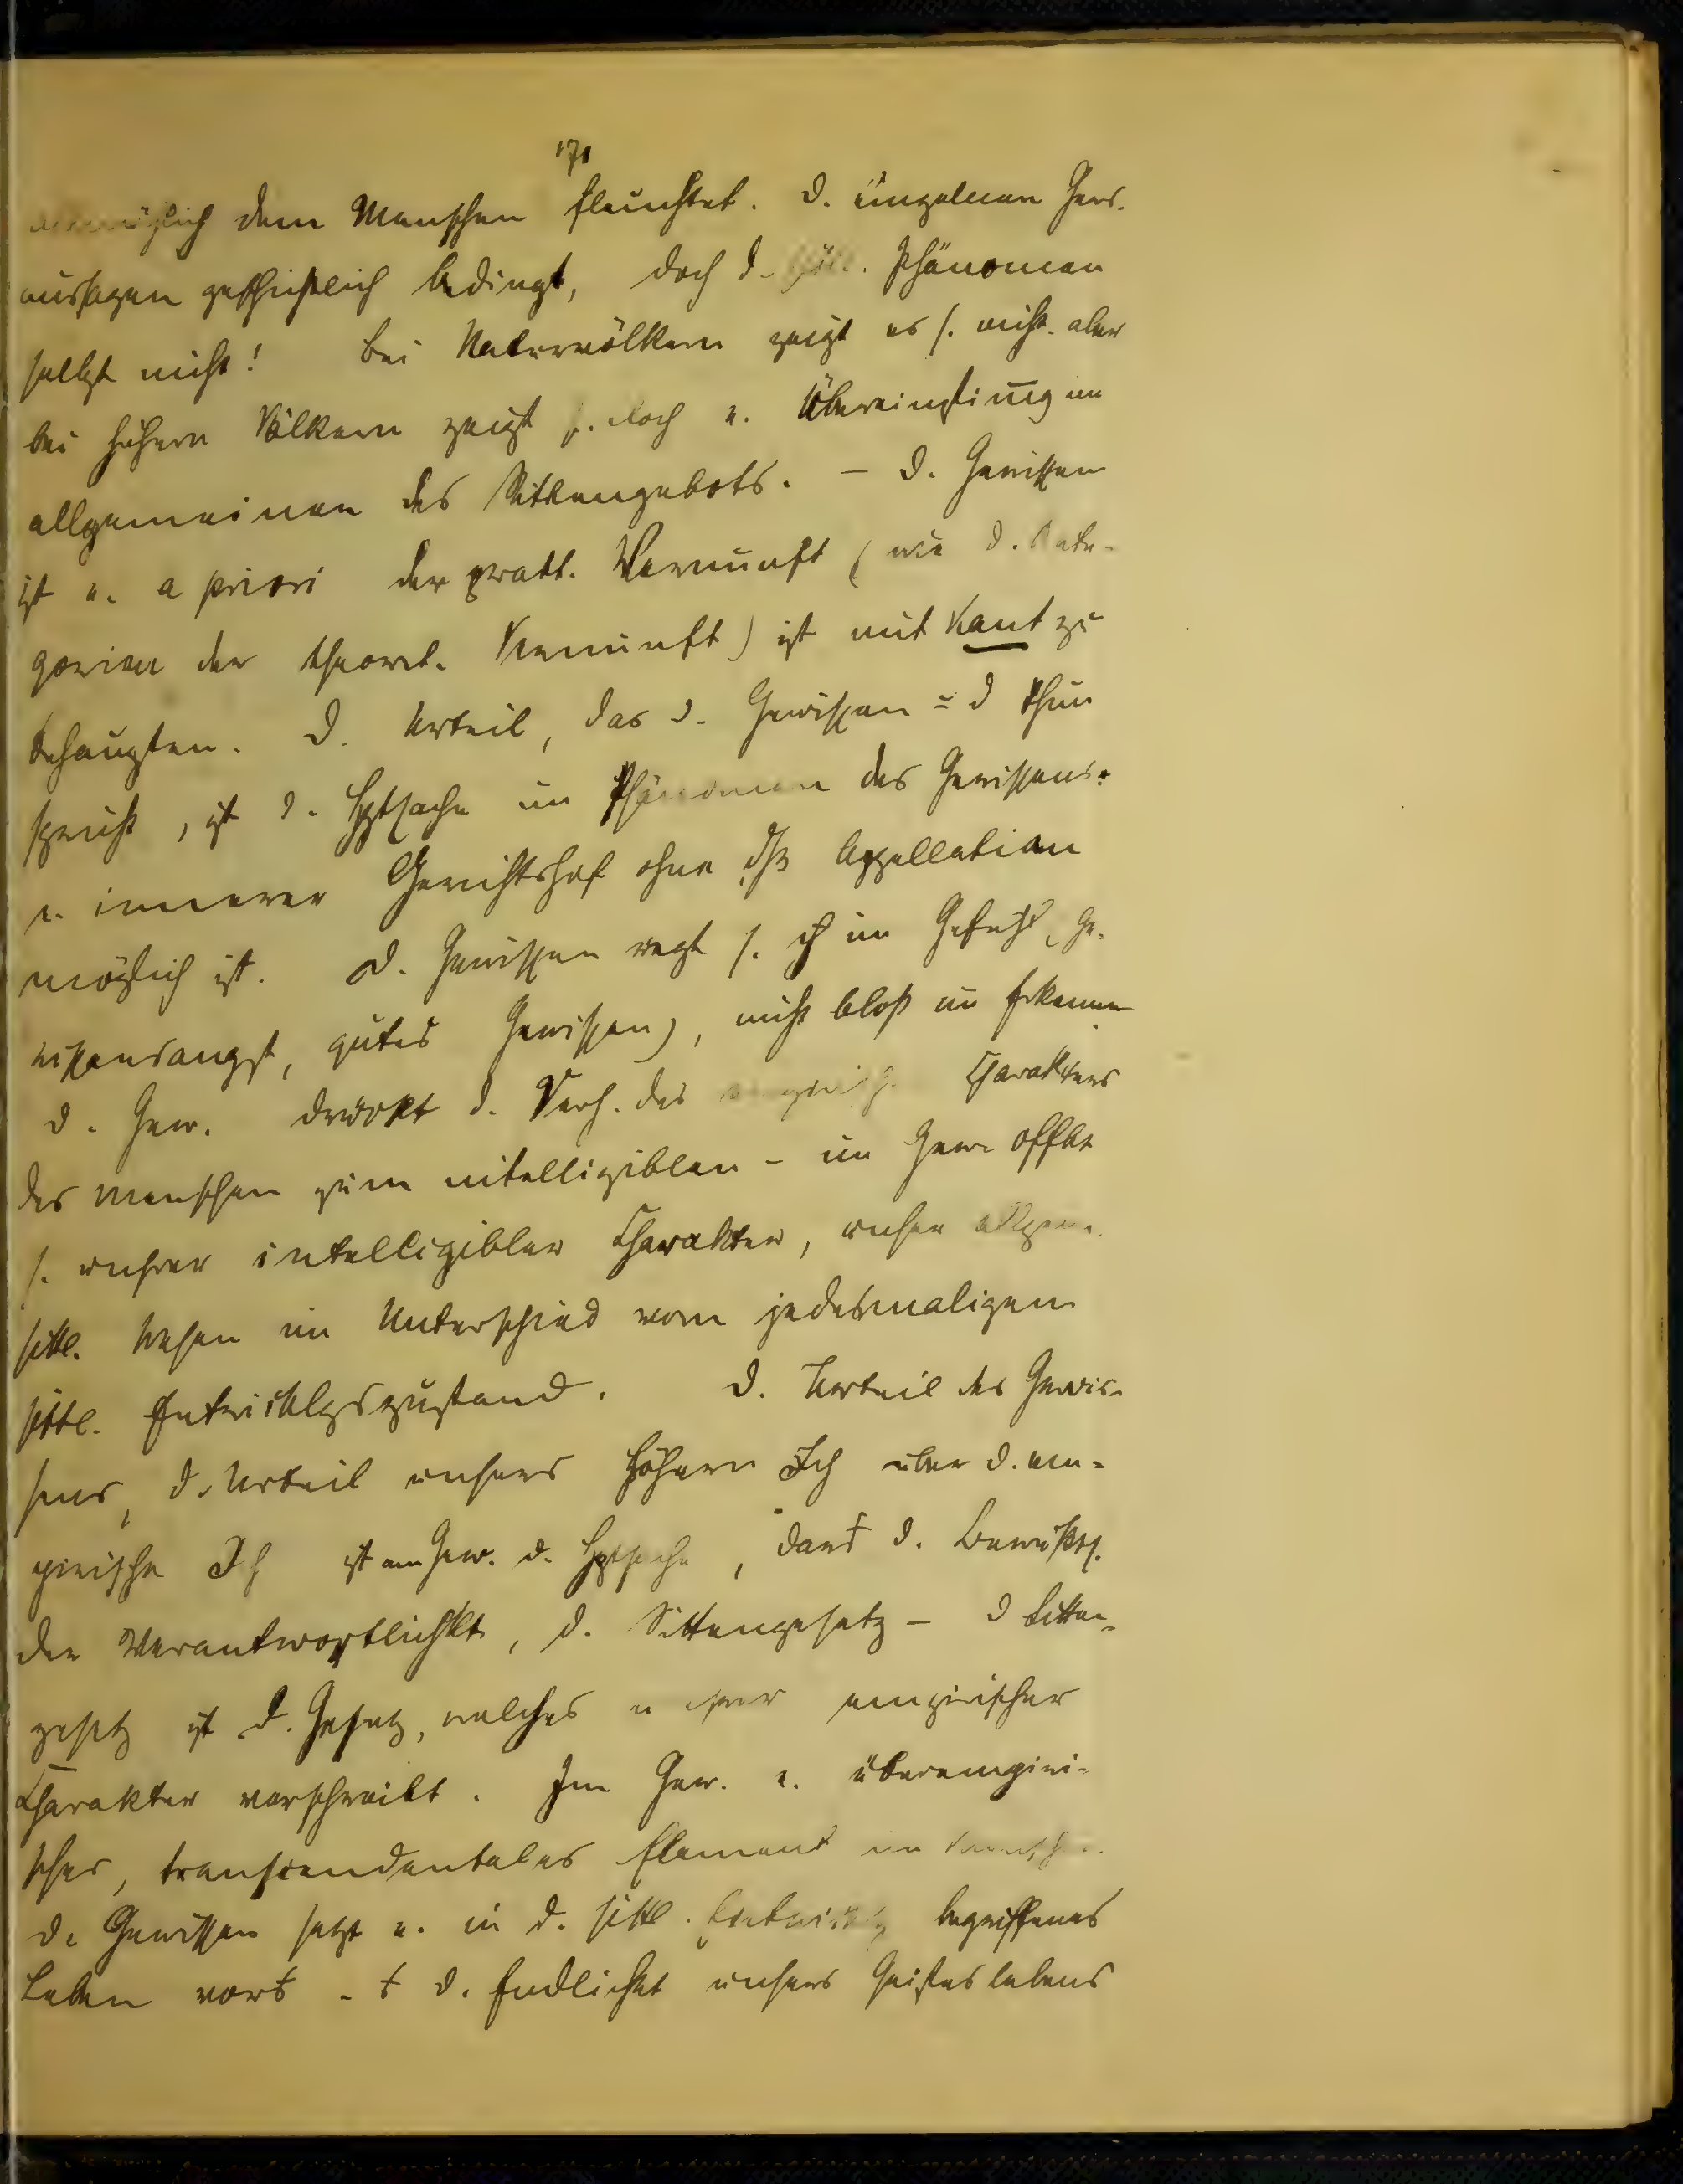 171
dem Menschen fleuchtet. D. einzelnen Gews.
aussagen geschichtlich bedingt, doch d. Phänomen
selbst nicht! Bei Naturvölkern zeigt es s. nicht. aber
bei höhern Völkern zeigt s. doch e. Übereinstimg im
allgemeinen des Sittengebots. – D. Gewissen
ist e. a priori der prakt. Vernunft (wie d. Kate-
gorien der theoret. Vernunft) ist mit Kant zu
behaupten. D. Urteil, das d. Gewissen ü d Thun
spricht, ist d. Hptsache im Phänomen des Gewissens.
e. innerer Gerichtshof ohne dß Appellation
möglich ist. D. Gewissen regt s. ch im Gefühl, Ge-
wissensangst, gutes Gewissen), nicht bloß im Erkennen
D. Gew. drückt d. Verh. des Charakters
des Menschen zum intelligiblen – im Gew. offbt
s. unser intelligibler Charakter, unser allgem.
sittl. Wesen im Unterschied vom jedesmaligen
sittl. Entwicklgszustand. D. Urteil des Gewis-
sens, d. Urteil unsers höhern Ich über d. em-
pirische Ich ist am Gew. d. Hptsache, d. Bewußts.
der Verantwortlichkt, d. Sittengesetz – D Sitten-
gesetz ist d. Gesetz, welches empirischer
Charakter vorschreibt. Im Gew. e. überempiri-
sches, transcendentales Element im
D. Gewissen setzt e. in d. sittl. Entwicklg begriffenes
Leben vors d. Endlichkt unsers Geisteslebens